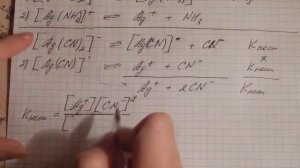 [Ag(NH₃)]⁺ ⇌ Ag⁺ + NH₃
[Ag(CN)₂]⁻ ⇌ [Ag(CN)]° + CN⁻ Kнест
2) [Ag(CN)]° ⇌ Ag⁺ + CN⁻ × Kнест
Ag⁺ + 2CN⁻
Kнест = [Ag⁺][CN⁻]² / [